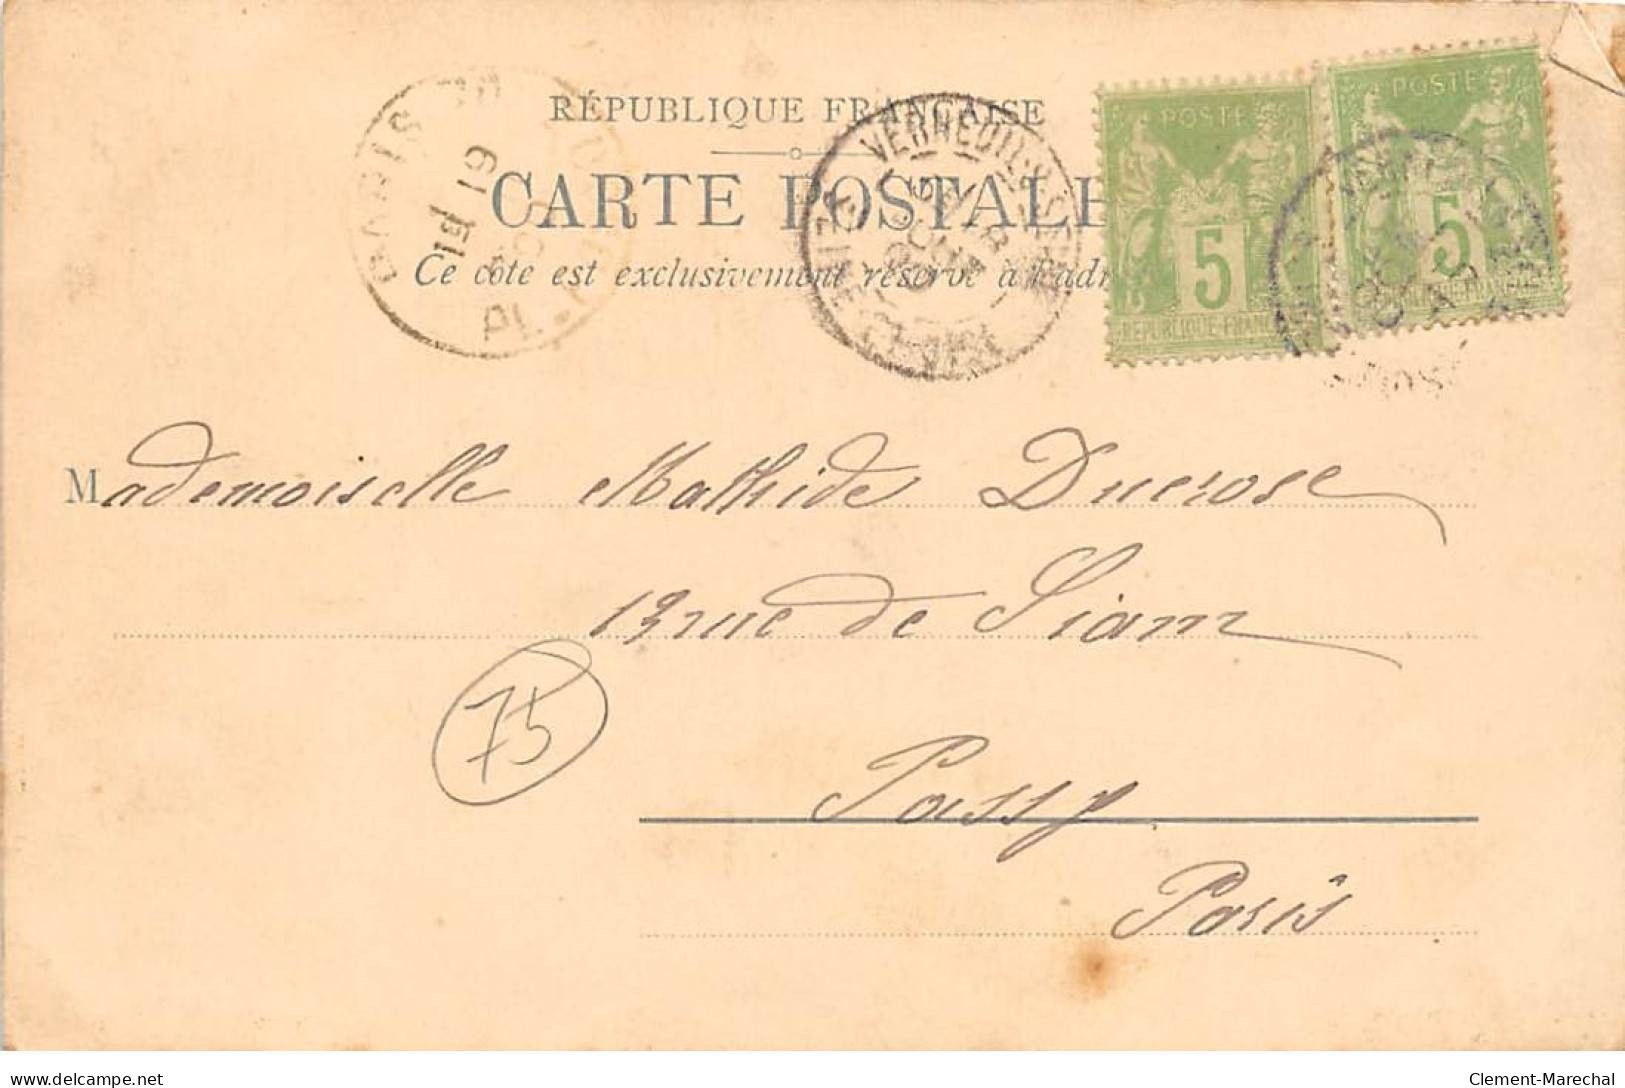 RÉPUBLIQUE FRANÇAISE
CARTE POSTALE
Ce côté est exclusivement réservé à l'adr
PARIS
19
POSTE
5
RÉPUBLIQUE FRANC
POSTE
5
REPUBLIQUE FRANCAISE
Mademoiselle Mathilde Ducrose
13 rue de Siam
75
Passy
Paris
www.delcampe.net
Clement-Marechal